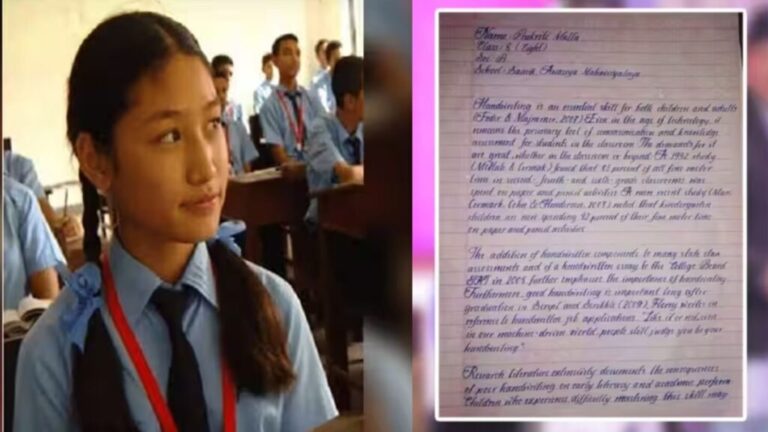 Name: Prakriti Malla
Class: 8 (Eight)
Sec: 'B'
School: Sainik Awasiya Mahavidyalaya
Handwriting is an essential skill for both children and adults
(Feder & Majnemer, 2007) Even in the age of technology, it
remains the primary tool of communication and knowledge
assessment for students in the classroom. The demands for it
are great, whether in the classroom or beyond. A 1992 study
(McHale & Cermak) found that 85 percent of all fine motor
time in second- fourth- and sixth-grade classrooms was
spent on paper and pencil activities A more recent study (Marr,
Cermak, Cohn & Henderson, 2003) noted that kindergarten
children are now spending 42 percent of their fine motor time
on paper and pencil activities.
The addition of handwritten components to many state
assessments and of a handwritten essay to the "College Board
SAT in 2005 further emphasize the importance of handwriting
Furthermore, good handwriting is important long after
graduation in Script and Scribble (2009), Florey writes in
reference to handwritten job applications. "Like it or not, even
in our machine-driven world, people still judge you by your
handwriting."
Research literature extensively documents the consequences
of poor handwriting on early literacy and academic
Children who experience difficulty mastering this skill may